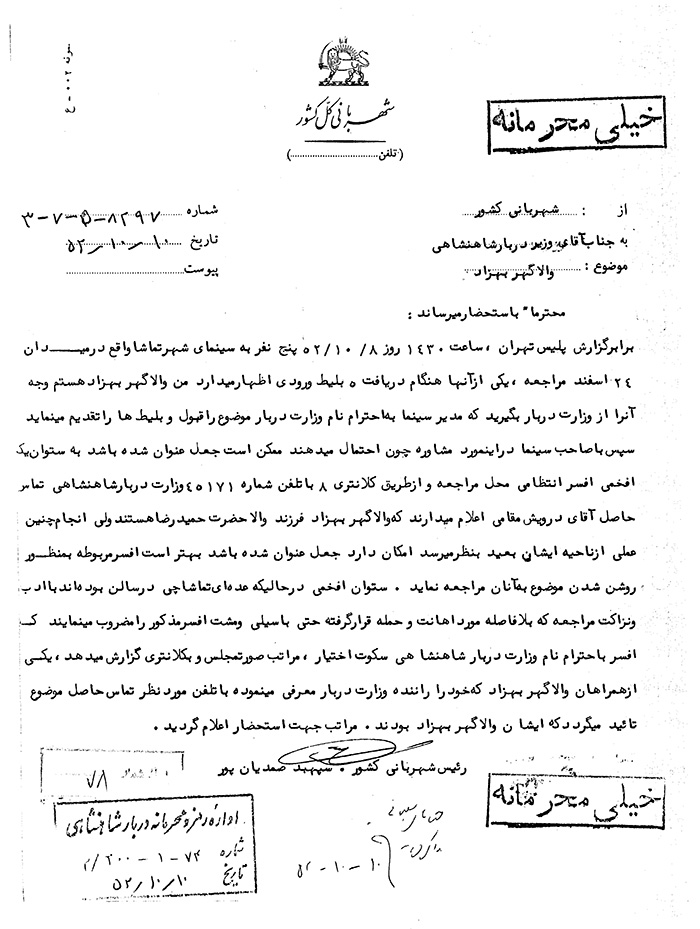 نمونه ۰۰۲ - ع
شهربانی کل کشور
(تلفن ....................)
خیلی محرمانه
از : شهربانی کشور
به جناب آقای وزیر دربار شاهنشاهی
موضوع : والاگهر بهزاد
شماره ۸۲۹۷-۵-۷-۳
تاریخ ۵۲/۱۰/۱۰
پیوست
محترما" باستحضار میرساند :
برابر گزارش پلیس تهران ، ساعت ۱۴۳۰ روز ۸ /۵۲/۱۰ پنج نفر به سینمای شهر تماشا واقع در میدان
۲۴ اسفند مراجعه ، یکی از آنها هنگام دریافت ۵ بلیط ورودی اظهار میدارد من والاگهر بهزاد هستم وجه
آنرا از وزارت دربار بگیرید که مدیر سینما به احترام نام وزارت دربار موضوع را قبول و بلیط ها را تقدیم مینماید
سپس با صاحب سینما در اینمورد مشاوره چون احتمال میدهند ممکن است جعل عنوان شده باشد به ستوان یک
افخمی افسر انتظامی محل مراجعه و از طریق کلانتری ۸ با تلفن شماره ۴۵۱۷۱ وزارت دربار شاهنشاهی تماس
حاصل آقای درویش مقامی اعلام میدارند که والاگهر بهزاد فرزند والاحضرت حمید رضا هستند ولی انجام چنین
عملی از ناحیه ایشان بعید بنظر میرسد امکان دارد جعل عنوان شده باشد بهتر است افسر مربوطه بمنظور
روشن شدن موضوع به آنان مراجعه نماید . ستوان افخمی در حالیکه عده ای تماشاچی در سالن بوده اند با ادب
و نزاکت مراجعه که بلافاصله مورد اهانت و حمله قرار گرفته حتی با سیلی و مشت افسر مذکور را مضروب مینمایند ک
افسر با حترام نام وزارت دربار شاهنشا هی سکوت اختیار ، مراتب صورتمجلس و بکلانتری گزارش میدهد ، یکی
از همراهان والاگهر بهزاد که خود را راننده وزارت دربار معرفی مینموده با تلفن مورد نظر تماس حاصل موضوع
تائید میگردد که ایشا ن والاگهر بهزاد بودند . مراتب جهت استحضار اعلام گردید .
رئیس شهربانی کشور . سپهبد صمدیان پور
خیلی محرمانه
۷۸
اداره رمز و محرمانه دربار شاهنشاهی
شماره ۷۴-۱-۲۰۰/م
تاریخ ۵۲/۱۰/۱۰
۵۲-۱۰-۱۰